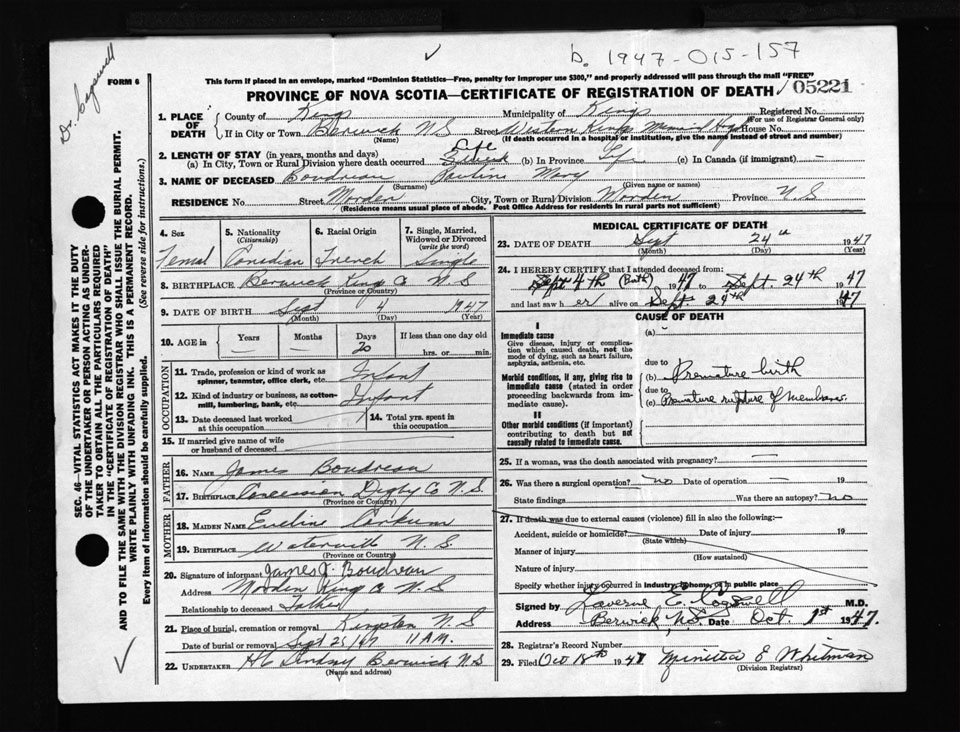 b. 1947-015-157
Dr. Cogswell
FORM 6
This form if placed in an envelope, marked "Dominion Statistics—Free, penalty for improper use $300," and properly addressed will pass through the mail "FREE"
PROVINCE OF NOVA SCOTIA—CERTIFICATE OF REGISTRATION OF DEATH 05221
1. PLACE OF DEATH
County of Kings Municipality of Kings Registered No.
(For use of Registrar General only)
If in City or Town Berwick N S Street Western Kings Memorial Hosp House No.
(Name) (If death occurred in a hospital or institution, give the name instead of street and number)
2. LENGTH OF STAY (in years, months and days) Life
(a) In City, Town or Rural Division where death occurred (b) In Province Life (c) In Canada (if immigrant) —
3. NAME OF DECEASED Boudreau Pauline Mary
(Surname) (Given name or names)
RESIDENCE No. Street Morden City, Town or Rural Division Morden Province N. S
(Residence means usual place of abode. Post Office Address for residents in rural parts not sufficient)
4. Sex
Femal
5. Nationality
(Citizenship)
Canadian
6. Racial Origin
French
7. Single, Married, Widowed or Divorced
(write the word)
Single
8. BIRTHPLACE Berwick King Co N. S
(Province or Country)
9. DATE OF BIRTH Sept 4 1947
(Month) (Day) (Year)
10. AGE in Years Months Days If less than one day old
— — 20 hrs. or min.
OCCUPATION
11. Trade, profession or kind of work as spinner, teamster, office clerk, etc. Infant
12. Kind of industry or business, as cotton-mill, lumbering, bank, etc. Infant
13. Date deceased last worked at this occupation
14. Total yrs. spent in this occupation
15. If married give name of wife or husband of deceased
FATHER
16. NAME James Boudreau
17. BIRTHPLACE Concession Digby Co N. S.
(Province or Country)
MOTHER
18. MAIDEN NAME Eveline Corkum
19. BIRTHPLACE Waterville N. S.
(Province or Country)
20. Signature of informant James J. Boudreau
Address Morden King Co N. S
Relationship to deceased Father
21. Place of burial, cremation or removal Kingston N. S
Date of burial or removal Sept 25/47 11 A.M.
22. UNDERTAKER H C Lindsay Berwick N. S
(Name and address)
MEDICAL CERTIFICATE OF DEATH
23. DATE OF DEATH Sept 24th 1947
(Month) (Day) (Year)
24. I HEREBY CERTIFY that I attended deceased from:
Sept 4th (Birth) 1947 to Sept. 24th 1947
and last saw her alive on Sept. 24th 1947
CAUSE OF DEATH
I
Immediate cause
Give disease, injury or complication which caused death, not the mode of dying, such as heart failure, asphyxia, asthenia, etc.
(a) -
due to
(b) Premature birth
Morbid conditions, if any, giving rise to immediate cause (stated in order proceeding backwards from immediate cause).
due to
(c) Premature rupture of membranes.
II
Other morbid conditions (if important) contributing to death but not causally related to immediate cause.
25. If a woman, was the death associated with pregnancy? —
26. Was there a surgical operation? no Date of operation — 19
State findings Was there an autopsy? no
27. If death was due to external causes (violence) fill in also the following:—
Accident, suicide or homicide? Date of injury 19
(State which)
Manner of injury
(How sustained)
Nature of injury
Specify whether injury occurred in Industry, in Home, or in public place
Signed by Laverne E. Cogswell M.D.
Address Berwick, N.S. Date Oct. 1st 1947.
28. Registrar's Record Number
29. Filed Oct 18th 1947 Minetta E Whitman
(Division Registrar)
SEC. 46—VITAL STATISTICS ACT MAKES IT THE DUTY OF THE UNDERTAKER OR PERSON ACTING AS UNDERTAKER TO OBTAIN ALL THE PARTICULARS REQUIRED IN THE "CERTIFICATE OF REGISTRATION OF DEATH" AND TO FILE THE SAME WITH THE DIVISION REGISTRAR WHO SHALL ISSUE THE BURIAL PERMIT.
WRITE PLAINLY WITH UNFADING INK. THIS IS A PERMANENT RECORD.
Every item of information should be carefully supplied. (See reverse side for instructions.)